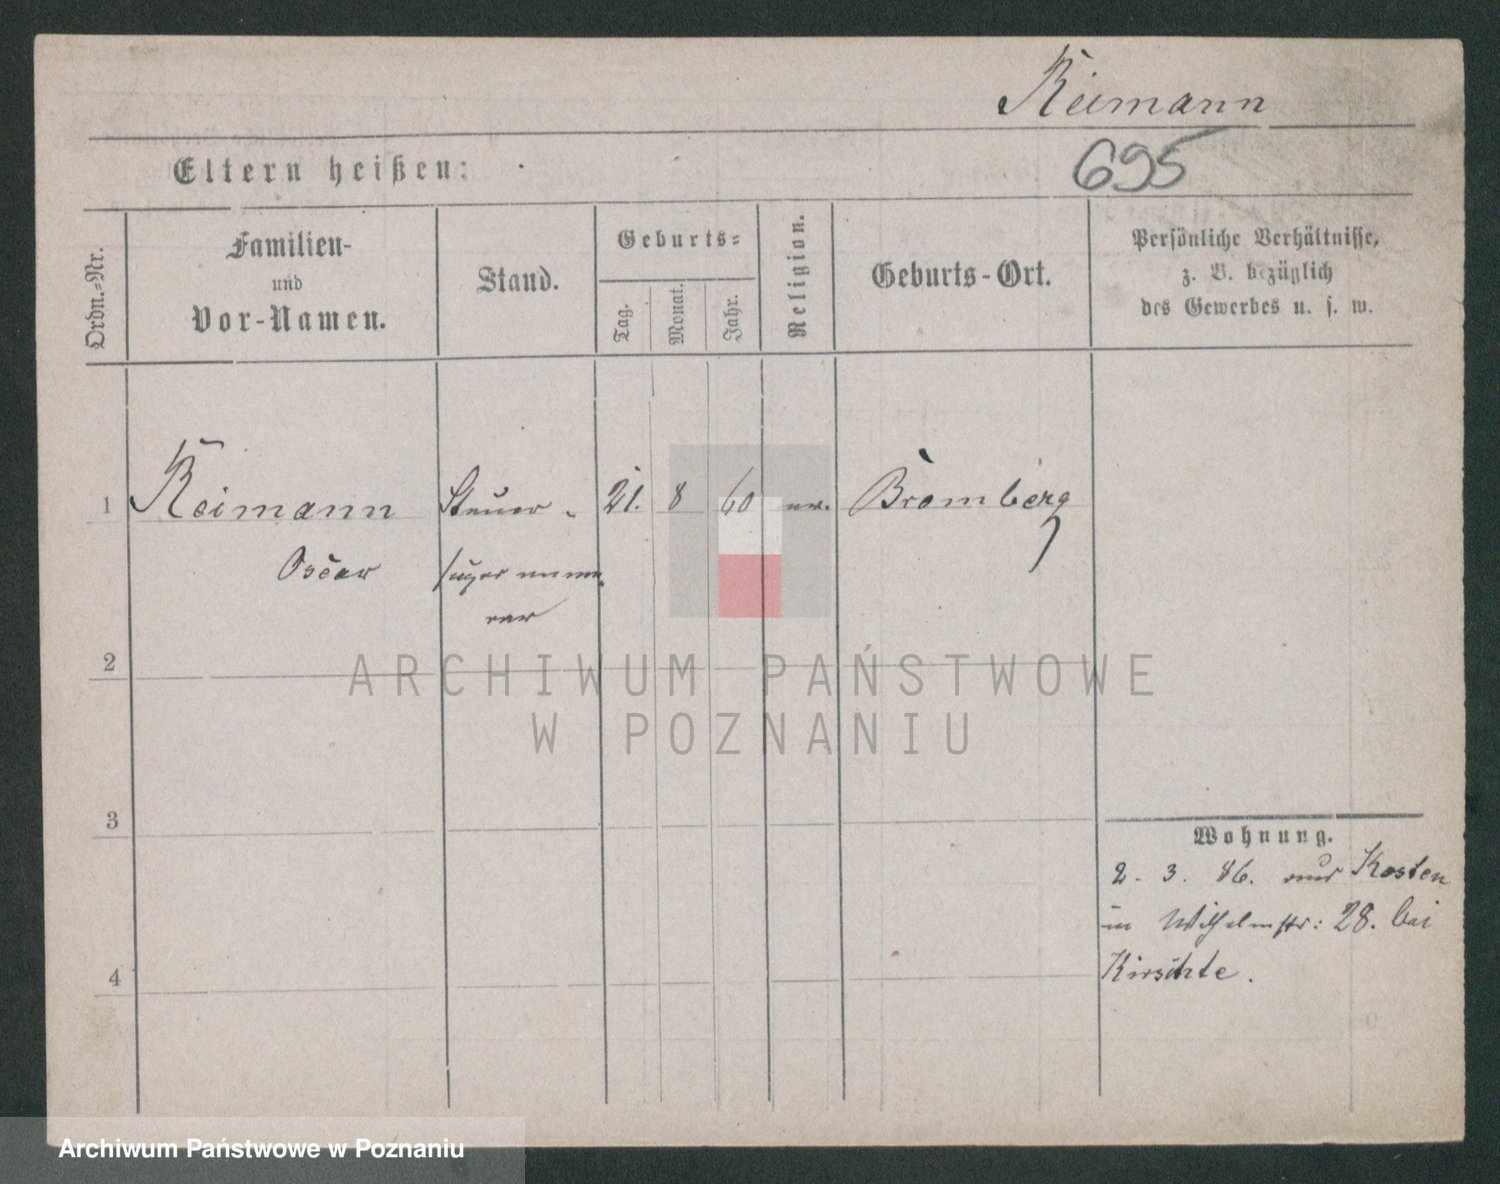 Reimann
695
Eltern heißen:
Ordn.-Nr.
Familien-
und
Vor-Namen.
Stand.
Geburts-
Tag.
Monat.
Jahr.
Religion.
Geburts-Ort.
Persönliche Verhältnisse,
z. B. bezüglich
des Gewerbes u. s. w.
1 Reimann Steuer- 21. 8 60 Bromberg
Oscar supernume
rar
2
ARCHIWUM PAŃSTWOWE
W POZNANIU
3
Wohnung.
2. 3. 86. aus Kosten
in Wilhelmstr: 28. bei
4
Archiwum Państwowe w Poznaniu